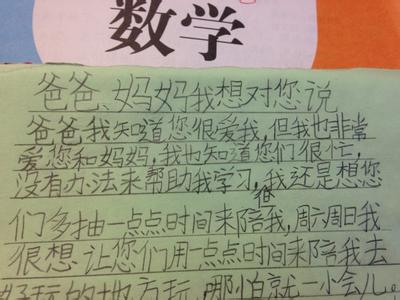 数学
爸爸、妈妈我想对您说
爸爸我知道您很爱我,但我也非常
爱您和妈妈,我也知道您们很忙,
没有办法来帮助我学习,但我还是想您
们多抽一点点时间来陪我,周六周日我
很想让您们用一点点时间来陪我去
好玩的地方玩,哪怕就一小会儿。